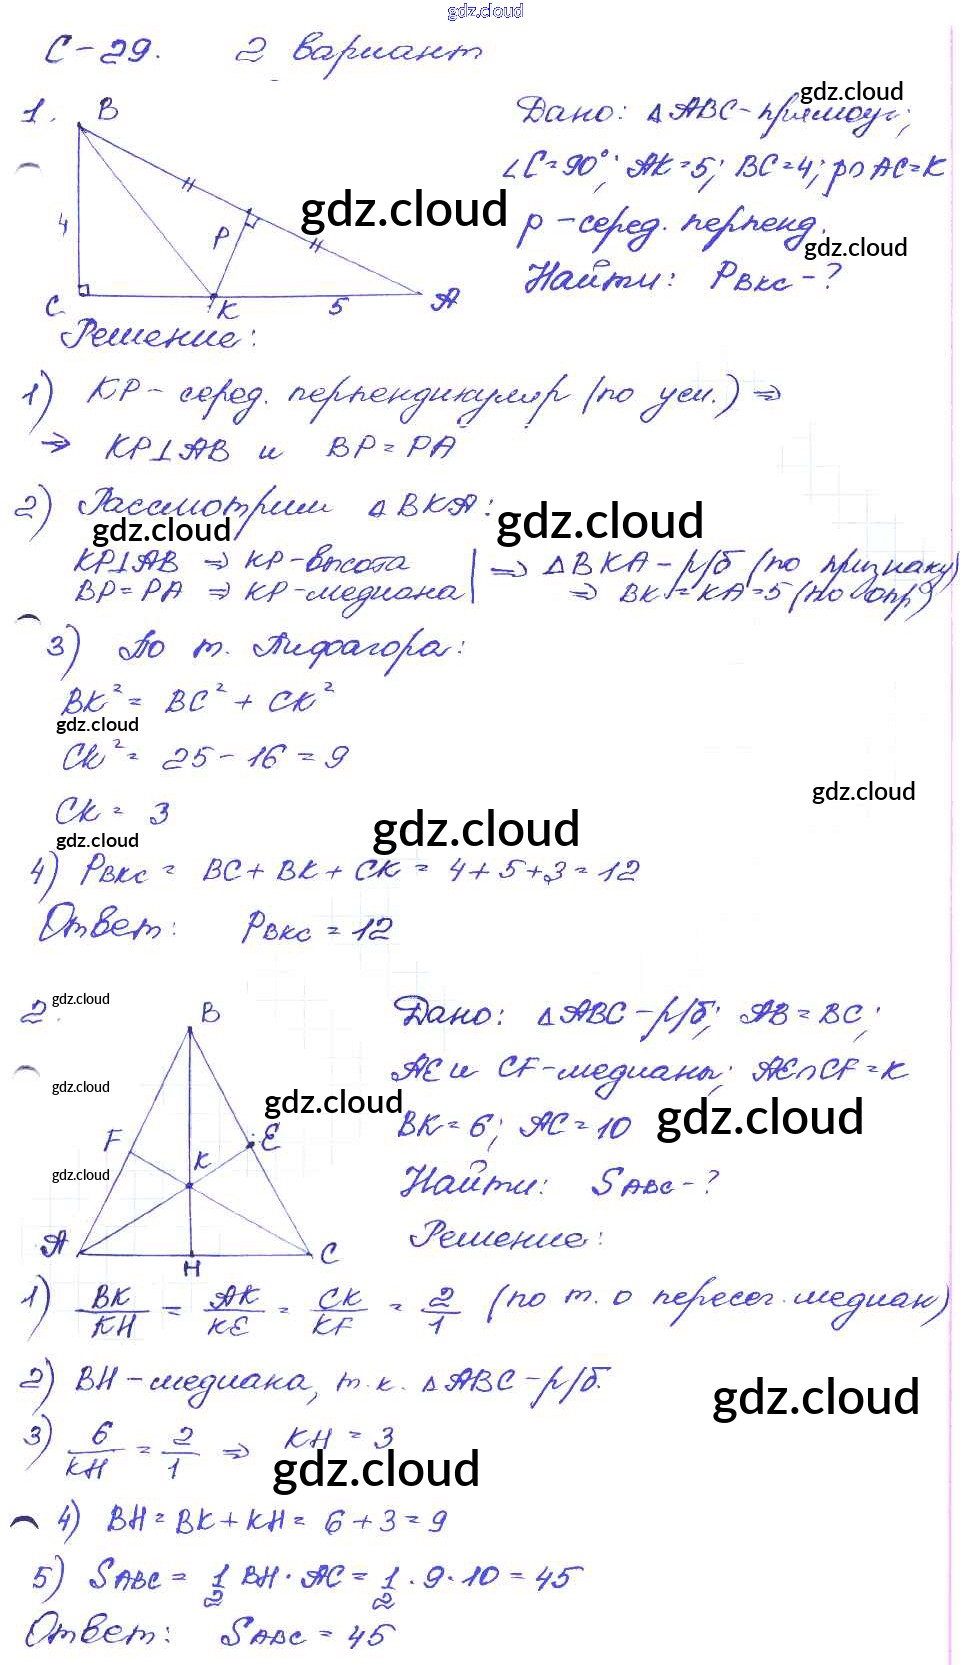 gdz.cloud
С-29. 2 вариант
1.
B
4
C
P
K
5
A
gdz.cloud
Дано: △ABC-прямоуг;
∠C=90°; AK=5; BC=4; p∩AC=K
gdz.cloud
p-серед. перпенд.
gdz.cloud
Найти: P_BKC-?
Решение:
1) KP-серед. перпендикуляр (по усл.) ⇒
⇒ KP⊥AB и BP=PA
2) Рассмотрим △BKA:
gdz.cloud
gdz.cloud
KP⊥AB ⇒ KP-высота
BP=PA ⇒ KP-медиана
⇒ △BKA-р/б (по признаку)
⇒ BK=KA=5 (по опр)
3) По т. Пифагора:
BK²= BC²+ CK²
gdz.cloud
CK²= 25-16=9
gdz.cloud
CK= 3
gdz.cloud
gdz.cloud
4) P_BKC= BC+BK+CK= 4+5+3=12
Ответ: P_BKC=12
2.
gdz.cloud
B
F
E
K
A
H
C
gdz.cloud
gdz.cloud
gdz.cloud
Дано: △ABC-р/б; AB=BC;
AE и CF-медианы; AE∩CF=K
BK=6; AC=10
gdz.cloud
Найти: S_ABC-?
Решение:
1) BK/KH = AK/KE = CK/KF = 2/1 (по т. о пересеч. медиан)
2) BH-медиана, т.к. △ABC-р/б.
gdz.cloud
3) 6/KH = 2/1 ⇒ KH=3
gdz.cloud
4) BH=BK+KH=6+3=9
5) S_ABC= 1/2 BH·AC= 1/2·9·10=45
Ответ: S_ABC=45